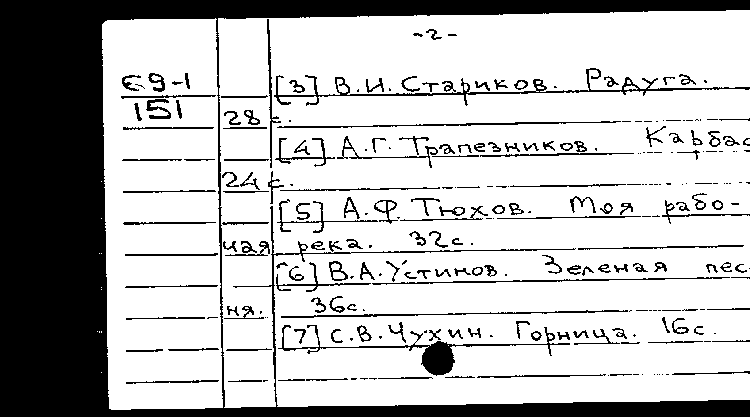 -2-
69-1
[3] В.И. Стариков. Радуга.
151
28 с.
[4] А.Г. Трапезников. Карбас
24 с.
[5] А.Ф. Тюхов. Моя рабо-
чая река. 32с.
[6] В.А. Устинов. Зеленая пес
ня. 36с.
[7] С.В. Чухин. Горница. 16с.